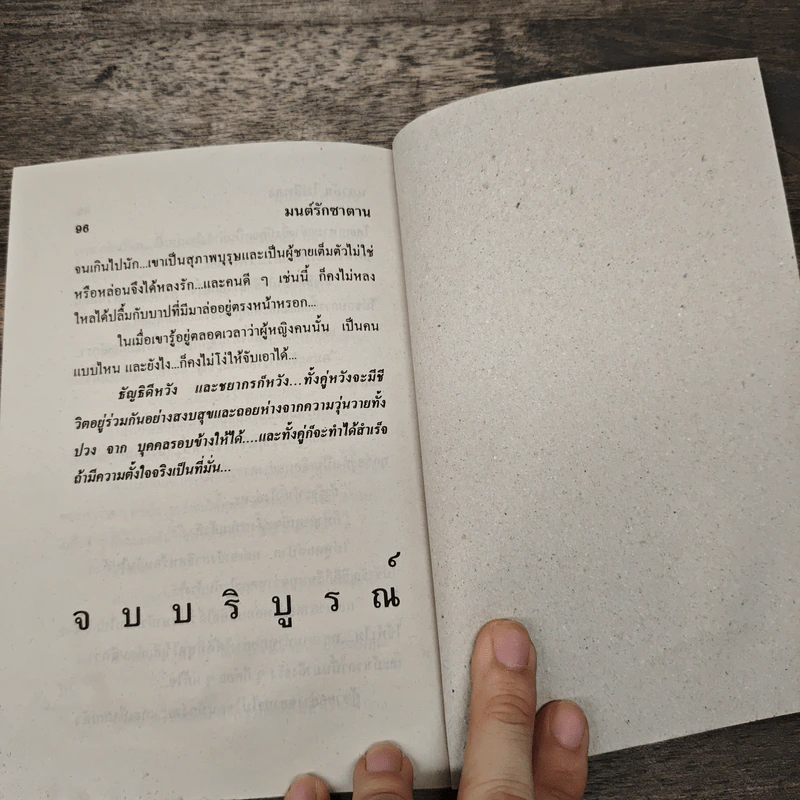 มนต์รักซาตาน
96
จนเกินไปนัก...เขาเป็นสุภาพบุรุษและเป็นผู้ชายเต็มตัวไม่ใช่
หรือหล่อนจึงได้หลงรัก...และคนดี ๆ เช่นนี้ ก็คงไม่หลง
ใหลได้ปลื้มกับบาปที่มีมาล่ออยู่ตรงหน้าหรอก...
ในเมื่อเขารู้อยู่ตลอดเวลาว่าผู้หญิงคนนั้น เป็นคน
แบบไหน และยังไง...ก็คงไม่โง่ให้จับเอาได้...
ธัญธิดีหวัง และชยากรก็หวัง...ทั้งคู่หวังจะมีชี
วิตอยู่ร่วมกันอย่างสงบสุขและถอยห่างจากความวุ่นวายทั้ง
ปวง จาก บุคคลรอบข้างให้ได้....และทั้งคู่ก็จะทำได้สำเร็จ
ถ้ามีความตั้งใจจริงเป็นที่มั่น...
จ บ บ ริ บู ร ณ์